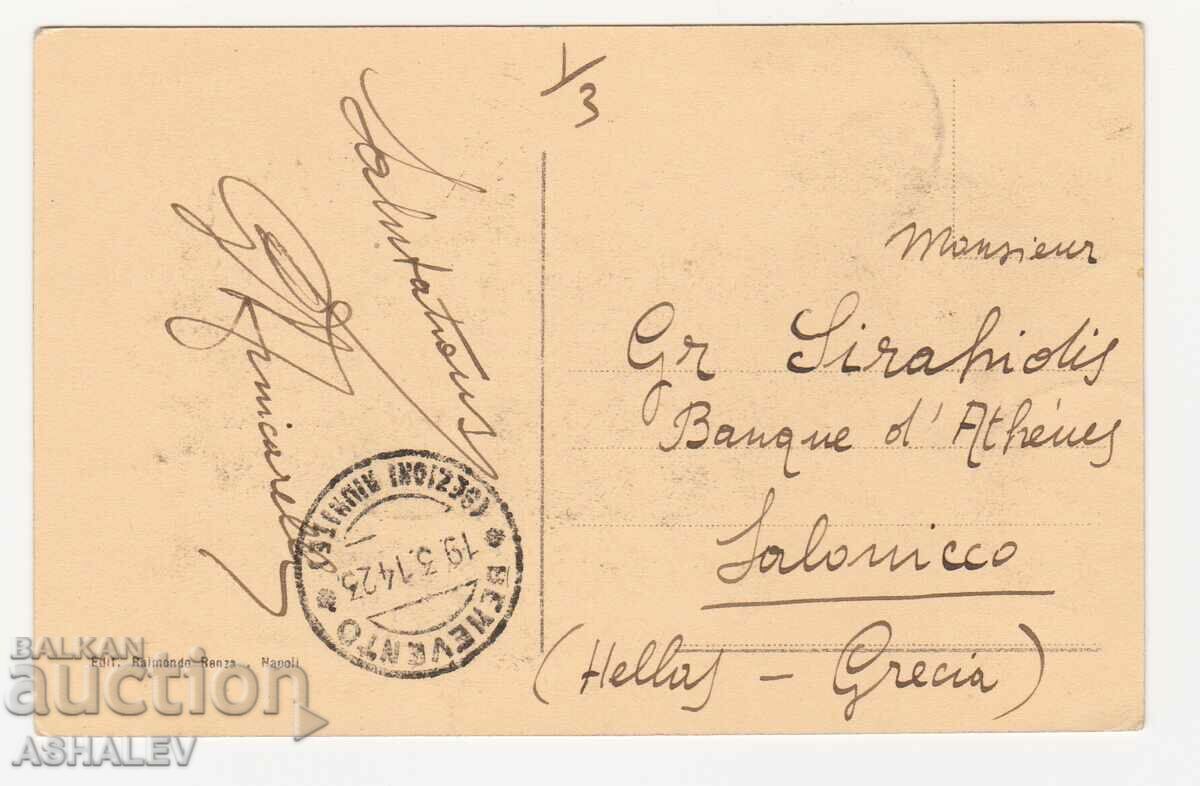 1/3
Salutations
Monsieur
Gr Sirapidis
Banque d'Athénes
Salonicco
(Hellas - Grecia)
* BENEVENTO *
(SEZIONI RIUNITE)
19.3.14 23
Edit. Raimondo Renza - Napoli
BALKAN
auction
ASHALEV